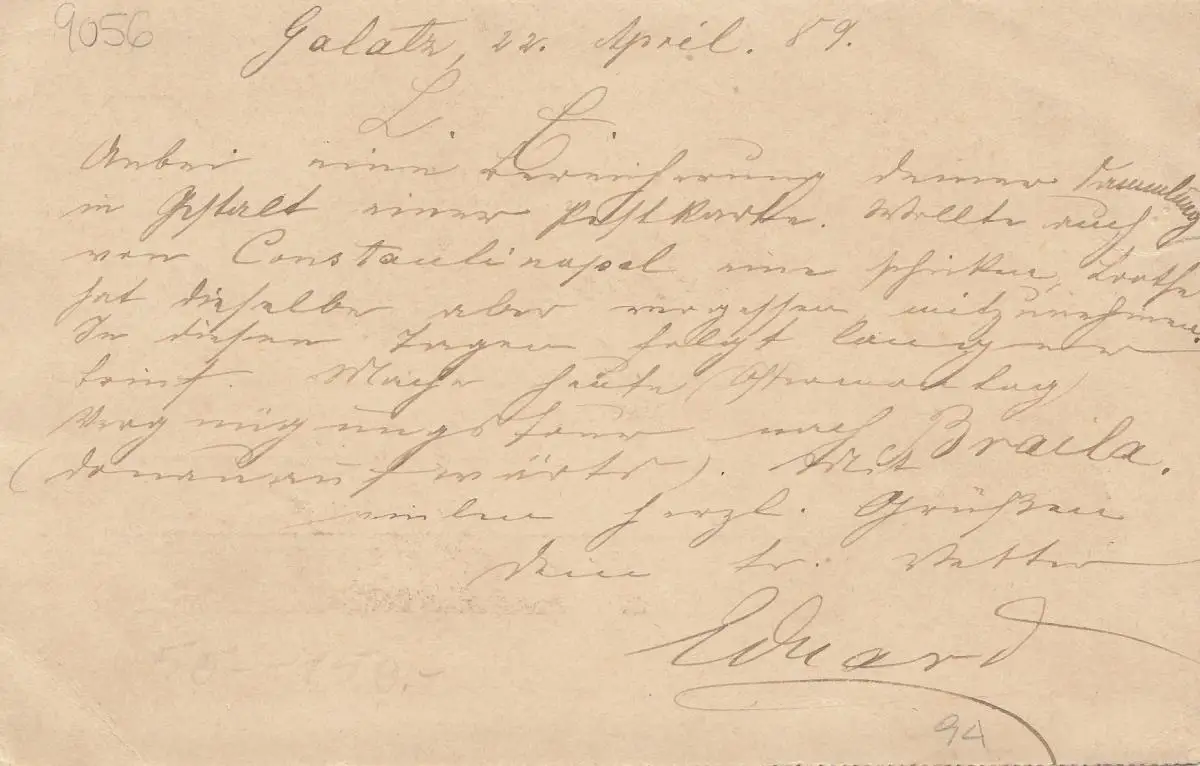 9056
Galatz, 22. April. 89.
L. E.
Anbei eine Bereicherung deiner Sammlung
in Gestalt einer Postkarte. Wollte auch
von Constantinopel eine schicken,
hat dieselbe aber vergessen mitzunehmen.
In diesen Tagen folgt langer
Brief. Mache heute (Ostermontag)
Vergnügungstour nach Braila.
(donauaufwärts). Mit
vielen herzl. Grüßen
Dein tr. Vetter
Eduard
94